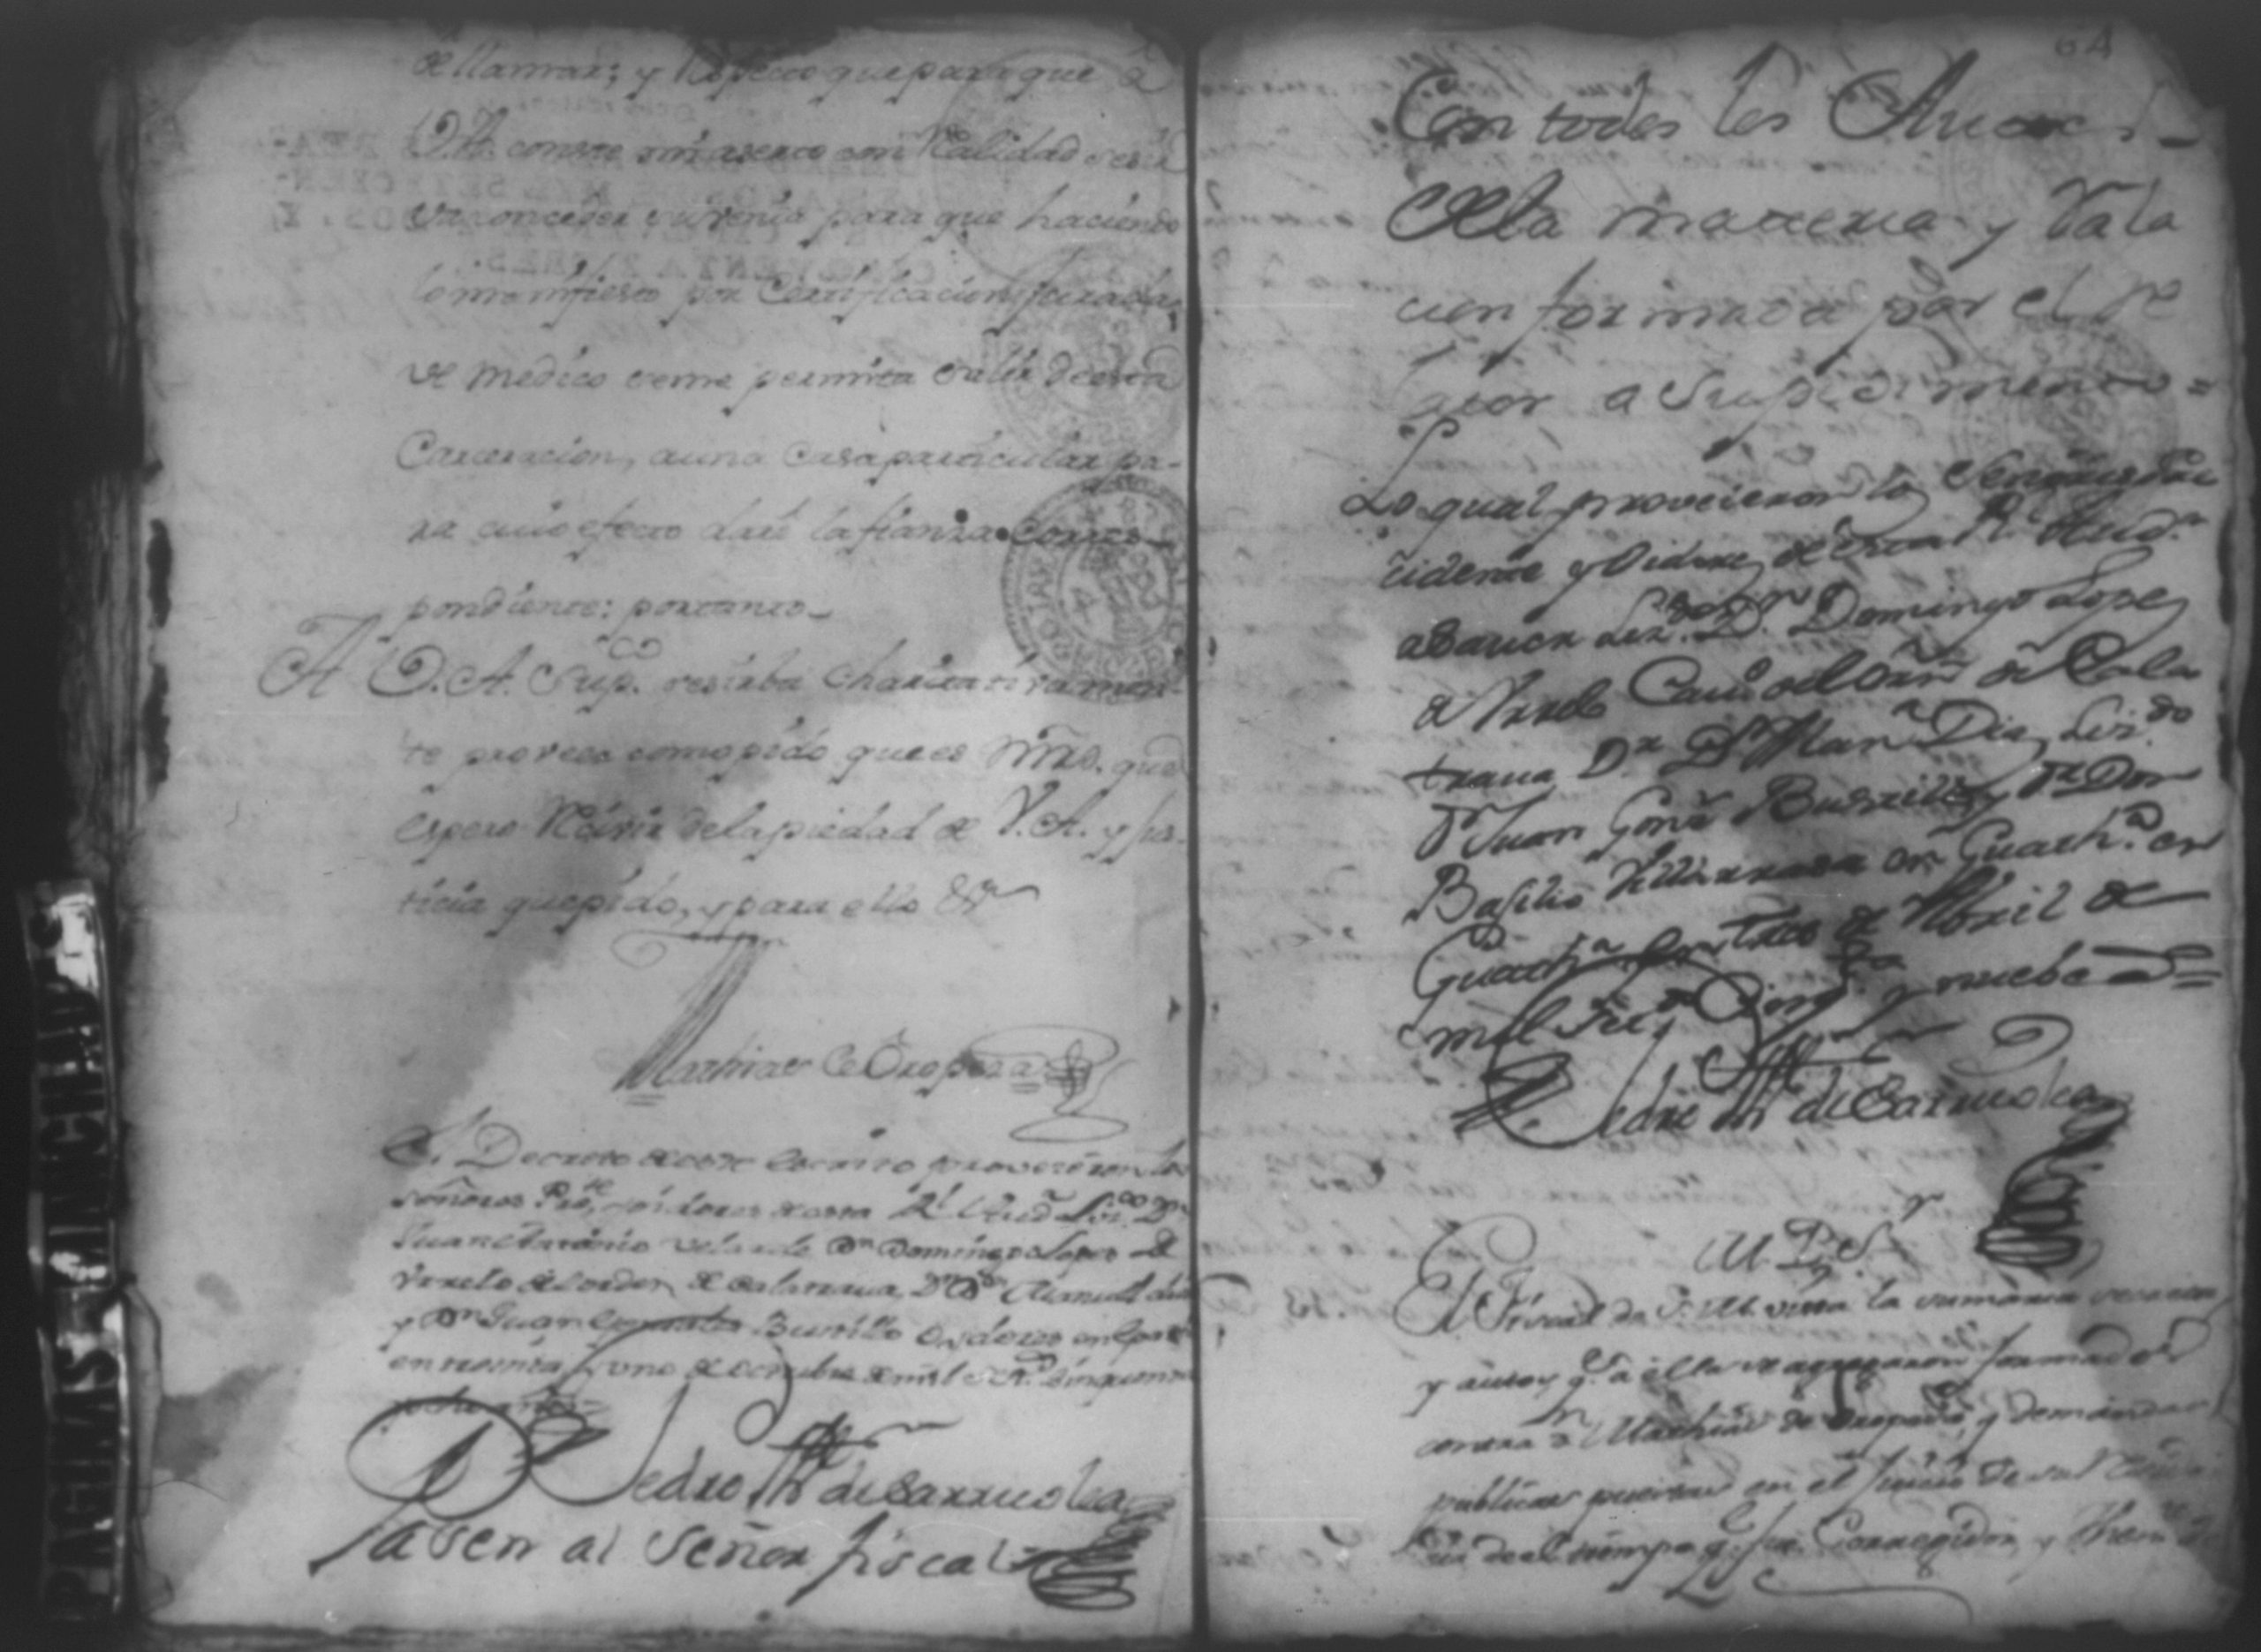 de llamar; y respecto que para que â
V.A. conste mi axerto con Calidad se ha
va conceder su venia para que haciendo
lo manifiesto por Certificacion jurada
de Medico se me permita salir de esta
Carceracion, a una Casa particular pa-
ra cuio efecto daré la fianza corres-
pondiente: por tanto
A V.A. Sup.co resiba charitativamen-
te provea como pido que es Mrd. que
espero recivir de la piedad de V.A. y jus-
ticia que pido, y para ello &a
Mathias de Oropeza
El Decreto de este escrito proveieron los
señores Pre.te, y oidores de esta Rl. Aud.a Liz.do Dn.
Juan Antonio Velarde Dn. Domingo Lopez de
Urrelo del orden de Calatrava, Dr. Dn. Manuel dias
y Dn. Juan Gonzalez Bustillo Oydores
en treinta y uno de octubre de mil Setz.s sinquenta
y ocho años=
Pedro Mrn de Barrueta
Pasen al Señor fiscal
64
Con todos los Autos
de la materia y dada
cuen formada por el re
lator a Su pedimento =
Lo qual proveieron los Señores Pre
cidente y Oidores de esta Rl. Aud.a
a saver Liz.do Dn. Domingo Lopez
de Urrelo Cav.o del Orñ de Cala
trava Dr. Dn. Man.l Diaz, Liz.do
Dn. Juan Gonz Bustillo y Dr. Don
Basilio Villarrasa en Guath.a en
Guath.a en tres de Abril de
mil Setz.s Cinq.ta y nuebe a.s =
Pedro Mrn de Barrueta
M. P. S.r
El Fiscal de S. M. vista la sumaria secreta
y autos q.e a ella se agregaron formados
contra Dn. Mathias de Oropeza, y demandas
publicas puestas en el juicio de
de el tiempo q.e fue Corregidor, y Then.te
PAGINAS MANCHADAS